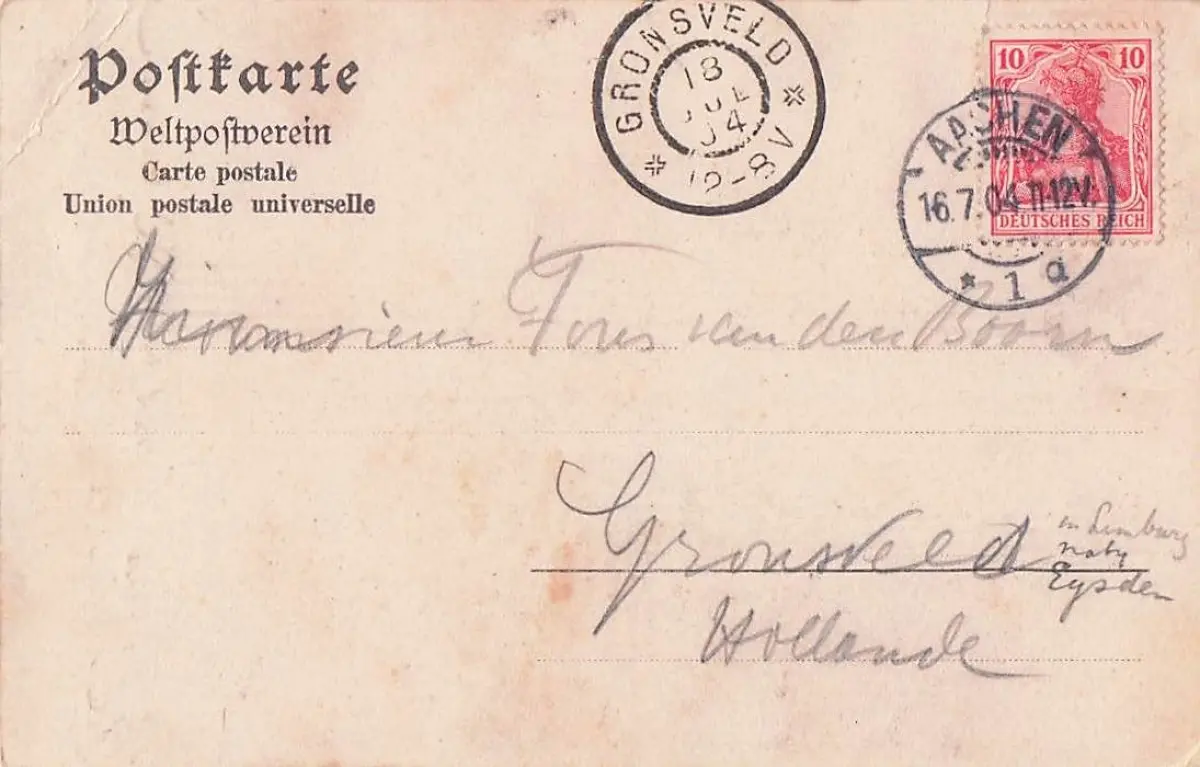 Postkarte
Weltpostverein
Carte postale
Union postale universelle
GRONSVELD
18
JUL
04
12-8V
10 10
DEUTSCHES REICH
AACHEN
16.7.04 11-12V.
* 1 a
van den Boorn
Gronsveld
in Limburg
naby
Eysden
Hollande